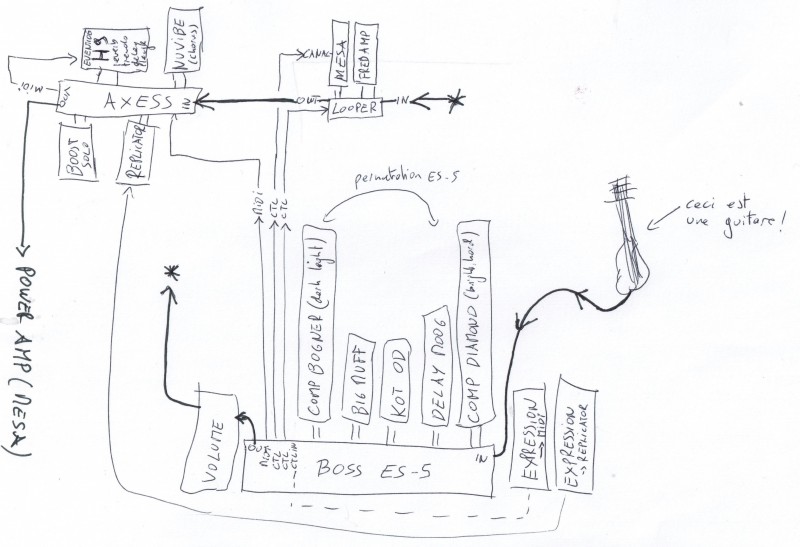 EVENTIDE
H9
reverb
tremolo
delay
NUVIBE
(chorus)
MIDI
OUT
AXESS
IN
BOOST
SOLO
REPLICATOR
CANAL
MESA
FRED AMP
OUT
LOOPER
IN
*
MIDI
CTL
CTL
permutation ES-5
ceci est
une guitare!
*
POWER AMP (MESA)
COMP BOGNER (dark light)
BIG MUFF
KOT OD
DELAY MOOG
COMP DIAMOND (bright.hard)
VOLUME
OUT
MIDI
CTL
CTL
CTL IN
BOSS ES-5
IN
EXPRESSION
→ MIDI
EXPRESSION
→ REPLICATOR